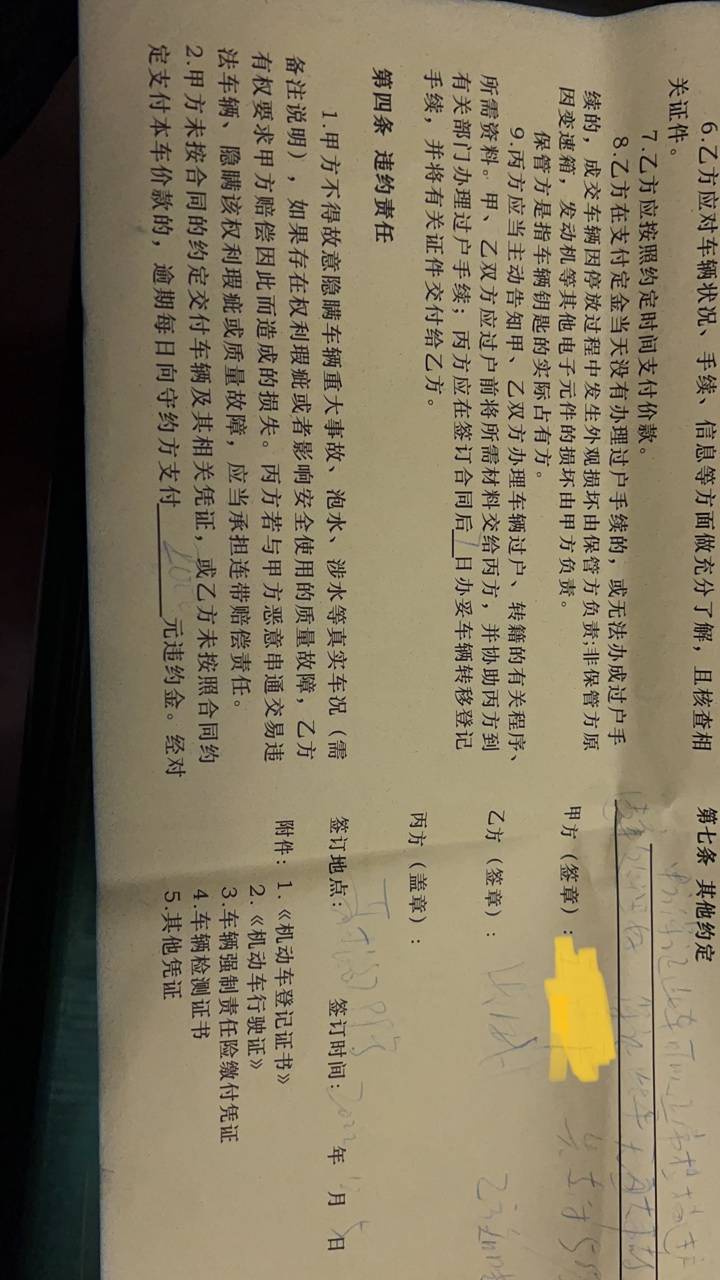 6.乙方应对车辆状况、手续、信息等方面做充分了解，且核查相
关证件。
7.乙方应按照约定时间支付价款。
8.乙方在支付定金当天没有办理过户手续的，或无法办成过户手
续的，成交车辆因停放过程中发生外观损坏由保管方负责;非保管方原
因变速箱，发动机等其他电子元件的损坏由甲方负责。
保管方是指车辆钥匙的实际占有方。
9.丙方应当主动告知甲、乙双方办理车辆过户、转籍的有关程序、
所需资料。甲、乙双方应过户前将所需材料交给丙方，并协助丙方到
有关部门办理过户手续；丙方应在签订合同后 日办妥车辆转移登记
手续，并将有关证件交付给乙方。
第四条 违约责任
1.甲方不得故意隐瞒车辆重大事故、泡水、涉水等真实车况（需
备注说明），如果存在权利瑕疵或者影响安全使用的质量故障，乙方
有权要求甲方赔偿因此而造成的损失。丙方若与甲方恶意串通交易违
法车辆、隐瞒该权利瑕疵或质量故障，应当承担连带赔偿责任。
2.甲方未按合同的约定交付车辆及其相关凭证，或乙方未按照合同约
定支付本车价款的，逾期每日向守约方支付 元违约金。经对
第七条 其他约定
甲方（签章）：
乙方（签章）：
丙方（盖章）：
签订地点： 签订时间：2022年 月 日
附件：1.《机动车登记证书》
2.《机动车行驶证》
3.车辆强制责任险缴付凭证
4.车辆检测证书
5.其他凭证